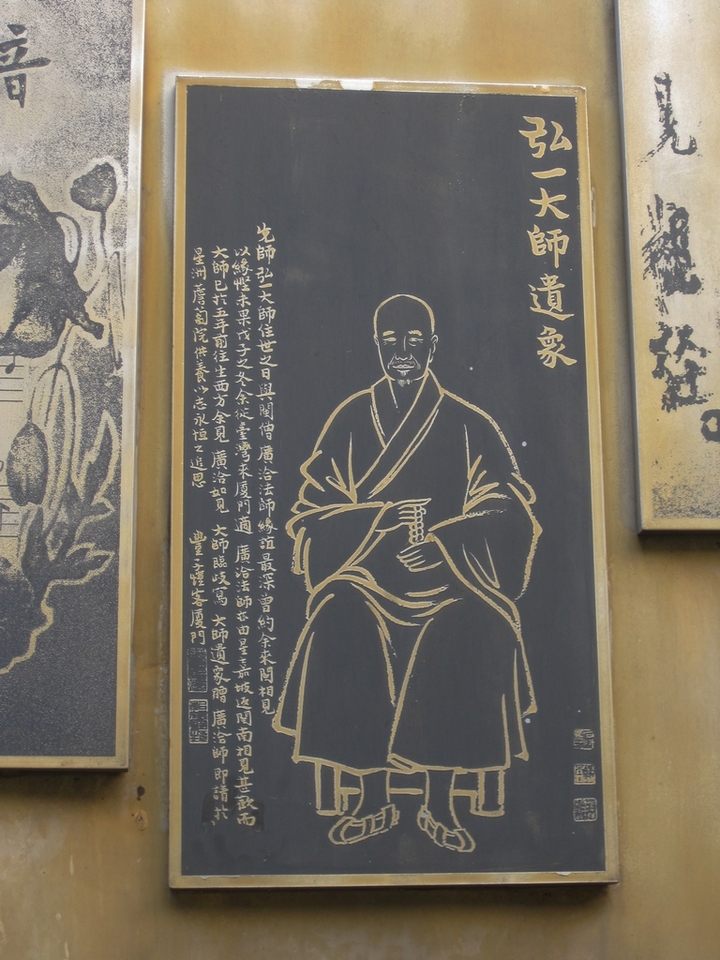 見
弘一大師遺象
先師弘一大師住世之日與閩僧 廣洽法師緣誼最深曾約余來閩相見
以緣慳未果戊子之冬余從臺灣來厦門適 廣洽法師亦由星嘉坡返閩南相見甚歡而
大師已於五年前往生西方余見 廣洽如見 大師臨歧寫 大師遺象贈 廣洽師即請於
星洲薝蔔院供養以志永恒之追思 豐子愷客厦門
音